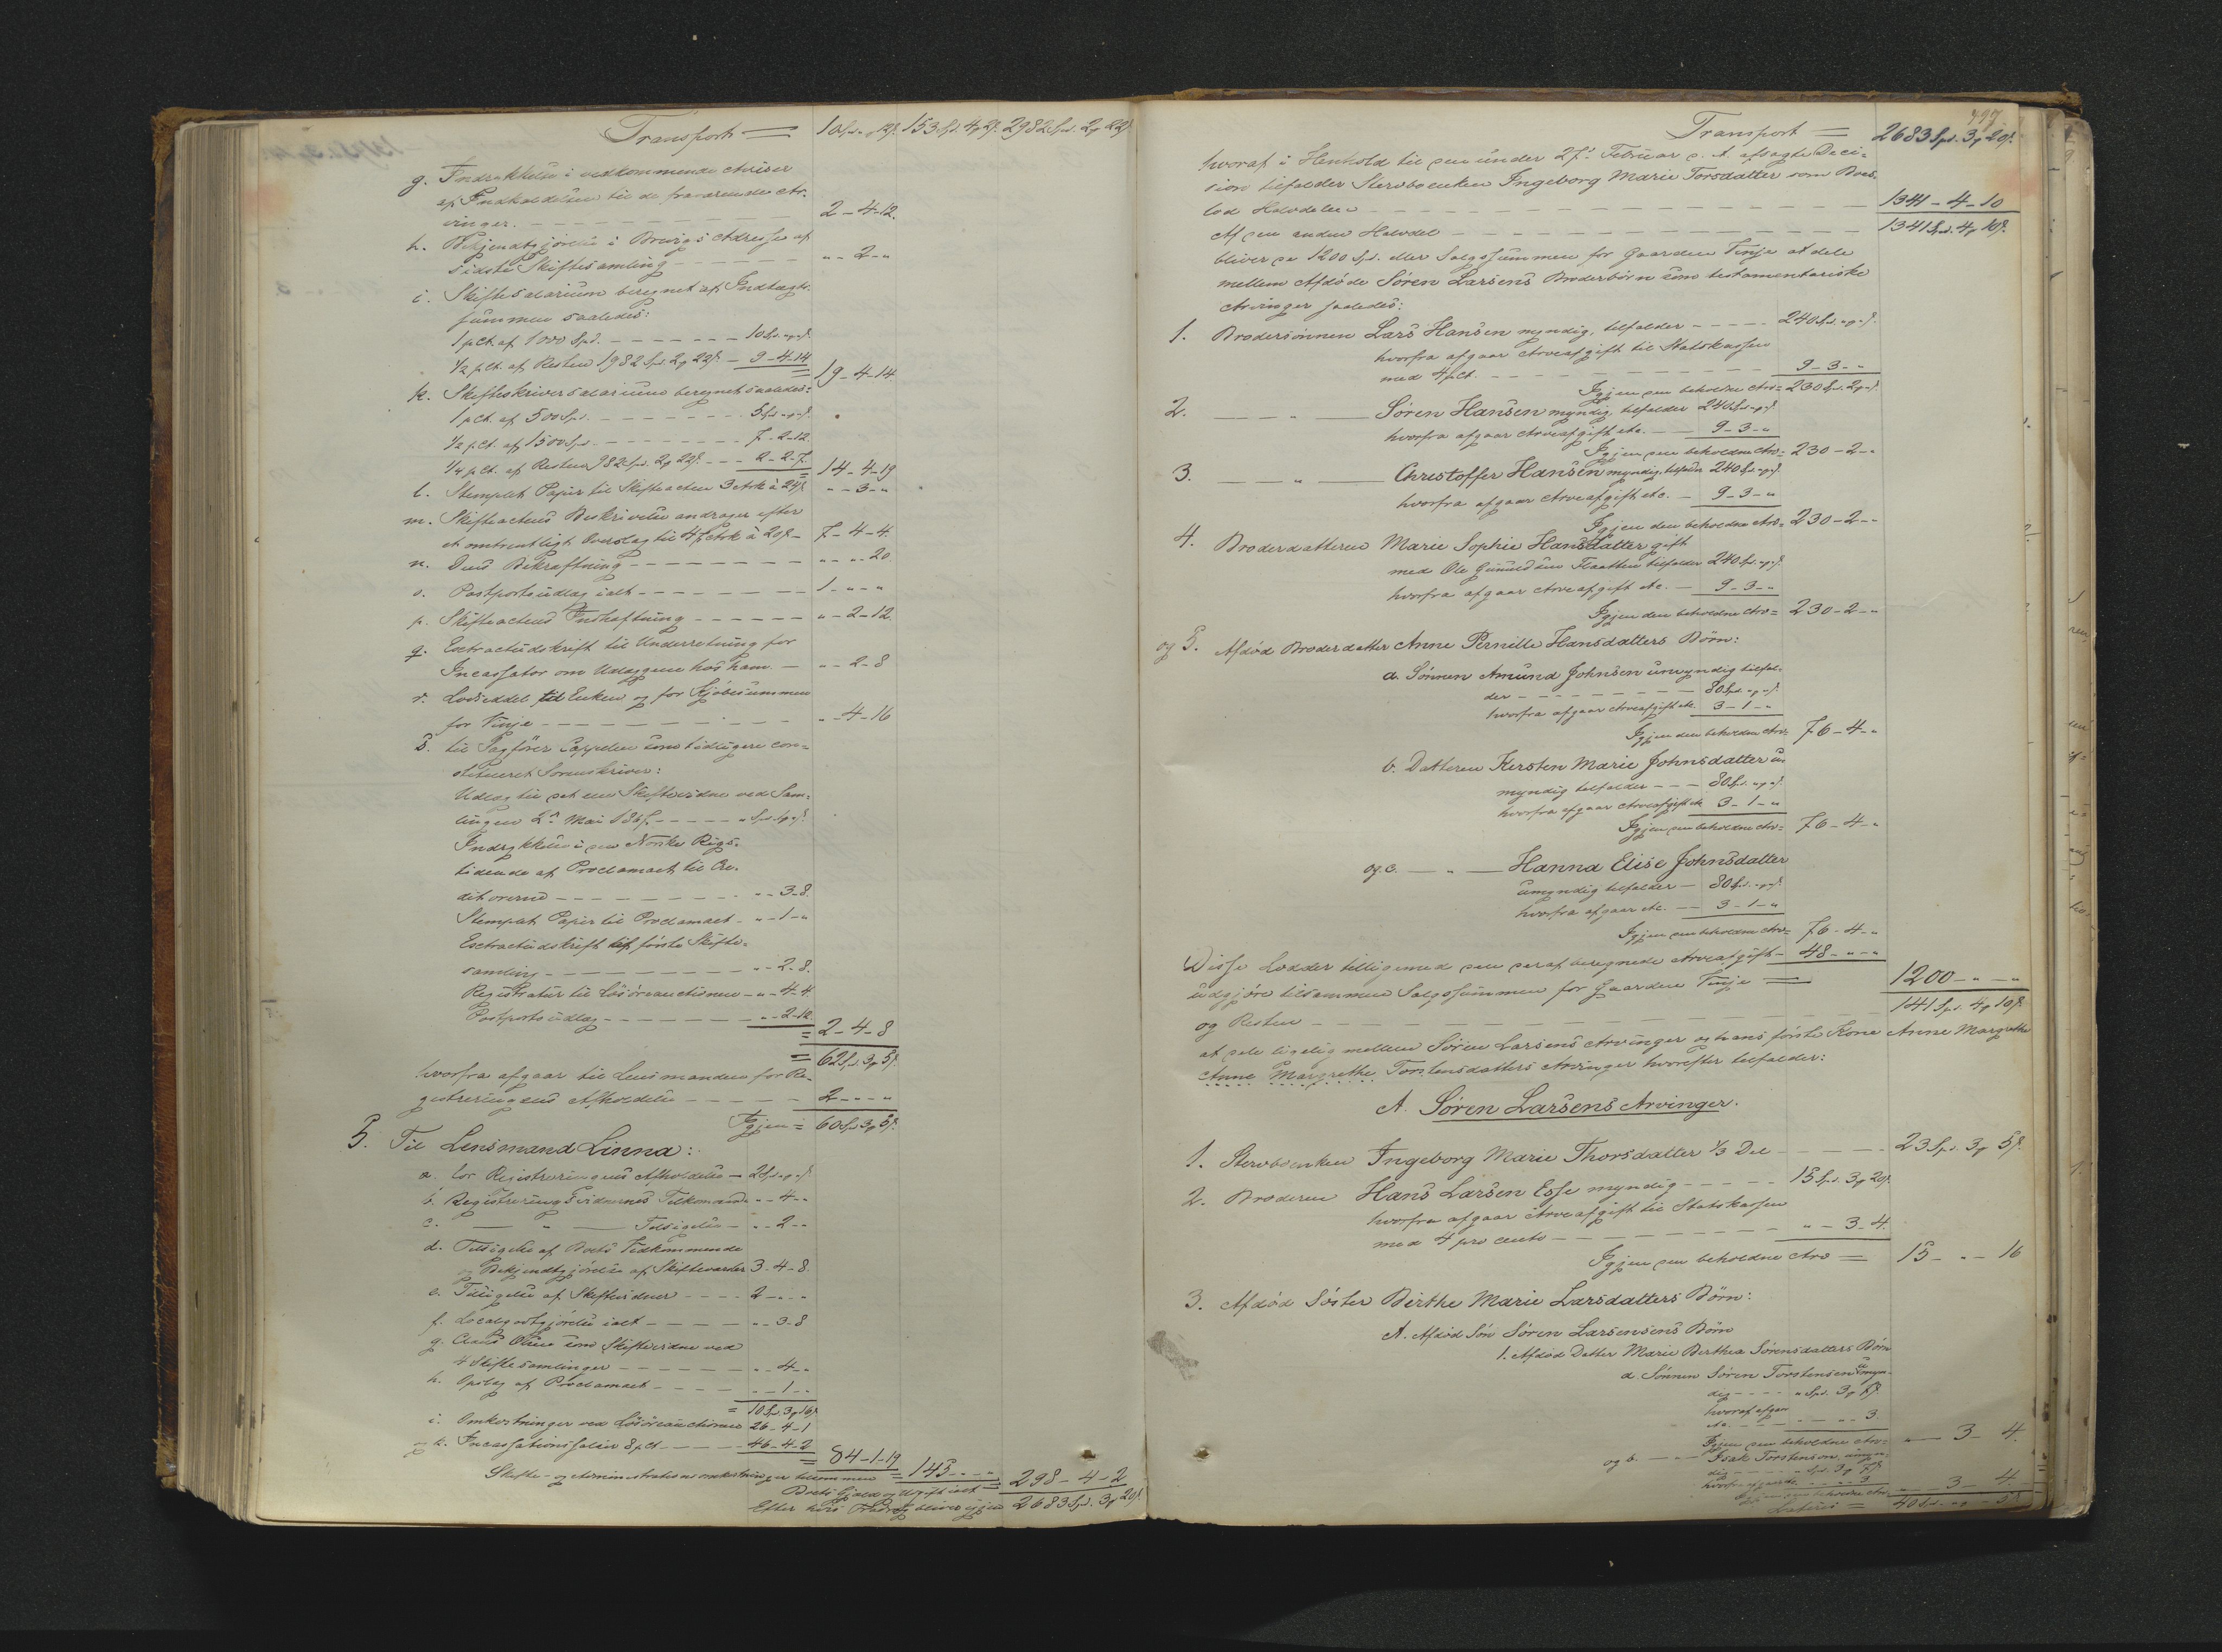 Transport = 10 Spd. " 12 s. 153 Spd. 4 2 s. 2982 Spd. 2 22 s.
g. Indrykkelse i vedkommende Aviser
af Indkaldelsen til de fraværende Ar-
vinger. - - - 2 - 4 - 12.
h. Bekjendtgjörelse i Brevigs Adresse af
sidste Skiftesamling - - - " - 2 - "
i. Skiftesalarium beregnet af Indtægts-
summen saaledes:
1 pCt. af 1000 Spd. - - - 10 Spd. " "
1/2 pCt. af Resten 1982 Spd. 2 22 s. - 9 - 4 - 14 = 19 - 4 - 14
k. Skifteskriversalarium beregnet saaledes:
1 pCt. af 500 Spd. - - - 5 Spd. " "
1/2 pCt. af 1500 Spd. - - - 7 - 2 - 12.
1/4 pCt. af Resten 982 Spd. 2 22 s. - - 2 - 2 - 7. = 14 - 4 - 19
l. Stemplet Papir til Skifteacten 3 Ark à 24 s. " - 3 - "
m. Skifteactens Beskrivelse andrager efter
et omtrentligt Overslag til 47 Ark à 20 s. - 7 - 4 - 4.
n. Dens Bekræftning - - - " - " - 20.
o. Postportoudlæg ialt - - - 1 - " - "
p. Skifteactens Indhæftning - - - " - 2 - 12.
q. Extractudskrift til Underretning for
Incassator om Udlæggene hos ham. - " - 2 - 8
r. Lodseddel til Enken og for Kjöbesummen
for Vinje - - - " - 4 - 16
s. til Sagförer Cappelen som tidligere con-
stitueret Sorenskriver:
Udlæg til det ene Skiftevidne ved Sam-
lingen 2den Mai 1867. - - - " Spd. 1 " s.
Indrykkelse i den Norske Rigs-
tidende af Proclamaet til Cre-
ditorerne - - - " - 3 - 8.
Stemplet Papir til Proclamaet - " - 1 - "
Extractudskrift af förste Skifte-
samling - - - " - 2 - 8.
Registratur til Lösöreauctionen - " - 4 - 4.
Postportoudlæg - - - " - 2 - 12 = 2 - 4 - 8
= 62 Spd. 3 5 s.
hvorfra afgaar til Lensmanden for Re-
gistreringens Afholdelse - - - 2 - " - "
Igjen = 60 Spd. 3 5 s.
5. Til Lensmand Linna:
a. for Registreringens Afholdelse - 2 Spd. " "
b. Registrering Vidnernes Tilkommende " - 4 - "
c. - " - Tilsigelse - " - 2 - "
d. Tilsigelse af Boets Vedkommende
og Bekjendtgjörelse af Skiftevarsler 3 - 4 - 8.
e. Tilsigelse af Skiftevidner - - - 2 - " - "
f. Localgodtgjörelse ialt - - - " - 3 - 8
g. Claus Olsen som Skiftevidne ved
4 Skiftesamlinger - - - " - 4 - "
h. Opslag af Proclamaet - - - " - 1 - "
= 10 Spd. 3 16 s.
i. Omkostninger ved Lösöreauctionen 26 - 4 - 1
og k. Incassationssalær 8 pCt. - - - 46 - 4 - 2 = 84 - 1 - 19
Skifte- og Administrationsomkostninger tilsammen = 145 - " - "
Boets Gjæld og Udgift ialt = 298 - 4 - 2
Efter hvis Fradrag bliver igjen 2683 Spd. 3 20 s.
497.
Transport = 2683 Spd. 3 20 s.
hvoraf i Henhold til den under 27de Februar d. A. afsagte Deci-
sion tilfalder Stervboenken Ingeborg Marie Torsdatter som Boes-
lod Halvdelen - - - 1341 - 4 - 10
Af den anden Halvdel - - - 1341 Spd. 4 10 s.
bliver de 1200 Spd. eller Salgssummen for Gaarden Vinje at dele
mellem Afdöde Sören Larsens Broderbörn som testamentariske
Arvinger saaledes:
1. Brodersönnen Lars Hansen myndig, tilfalder - - - 240 Spd. " "
hvorfra afgaar Arveafgift til Statskassen
med 4 pCt. - - - 9 - 3 - "
Igjen den beholdne Arv = 230 Spd. 2 " s.
2. - " - Sören Hansen myndig, tilfalder 240 Spd. " "
hvorfra afgaar Arveafgift etc. - 9 - 3 - "
Igjen den beholdne Arv = 230 - 2 - "
3. - " - Christoffer Hansen myndig, tilfalder 240 Spd. " "
hvorfra afgaar Arveafgift etc. - 9 - 3 - "
Igjen den beholdne Arv = 230 - 2 - "
4. Broderdatteren Marie Sophie Hansdatter gift
med Ole Gunuldsen Flaatten tilfalder 240 Spd. " "
hvorfra afgaar Arveafgift etc. - 9 - 3 - "
Igjen den beholdne Arv = 230 - 2 - "
og 5. Afdöd Broderdatter Anne Pernille Hansdatters Börn:
a. Sönnen Amund Johnsen umyndig tilfal-
der - - - 80 Spd. " "
hvorfra afgaar Arveafgift etc. 3 - 1 - "
Igjen den beholdne Arv = 76 - 4 - "
b. Datteren Kirsten Marie Johnsdatter u-
myndig tilfalder - - - 80 Spd. " "
hvorfra afgaar Arveafgift etc. 3 - 1 - "
Igjen den beholdne Arv = 76 - 4 - "
og c. - " - Hanna Elise Johnsdatter
umyndig tilfalder - 80 Spd. " "
hvorfra afgaar etc. - 3 - 1 - "
Igjen den beholdne Arv = 76 - 4 - "
Disse Lodder tilligemed den deraf beregnede Arveafgift - 48 - " - "
udgjöre tilsammen Salgssummen for Gaarden Vinje = 1200 - " - "
og Resten - - - 141 Spd. 4 10 s.
at dele ligelig mellem Sören Larsens Arvinger og hans förste Kone Anne Margrethe
Anne Margrethe Torstensdatters Arvinger hvorefter tilfalder:
A. Sören Larsens Arvinger.
1. Stervboenken Ingeborg Marie Thorsdatter 1/3 Del - - - 23 Spd. 3 5 s.
2. Broderen Hans Larsen Esse myndig - - - 15 Spd. 3 20 s.
hvorfra afgaar Arveafgift til Statskassen
med 4 pro cento - - - " - 3 - 4.
Igjen den beholdne Arv = 15 - " - 16
3. Afdöd Söster Birthe Marie Larsdatters Börn:
A. Afdöd Sön Sören Larsensens Börn
1. Afdöd Datter Marie Berthea Sörensdatters Börn
a. Sönnen Sören Torstensen umyn-
dig - - - " Spd. 3 7 s.
hvoraf afgaar
etc. - - - " - " - 3
Igjen den beholdne Arv = " - 3 - 4.
og b. - " - Isak Torstensen umyn-
dig - - - " Spd. 3 7 s.
hvorfra afgaar etc. - " - 3
Igjen den beholdne Arv " - 3 - 4
Lateris = 40 Spd. " - 5 s.